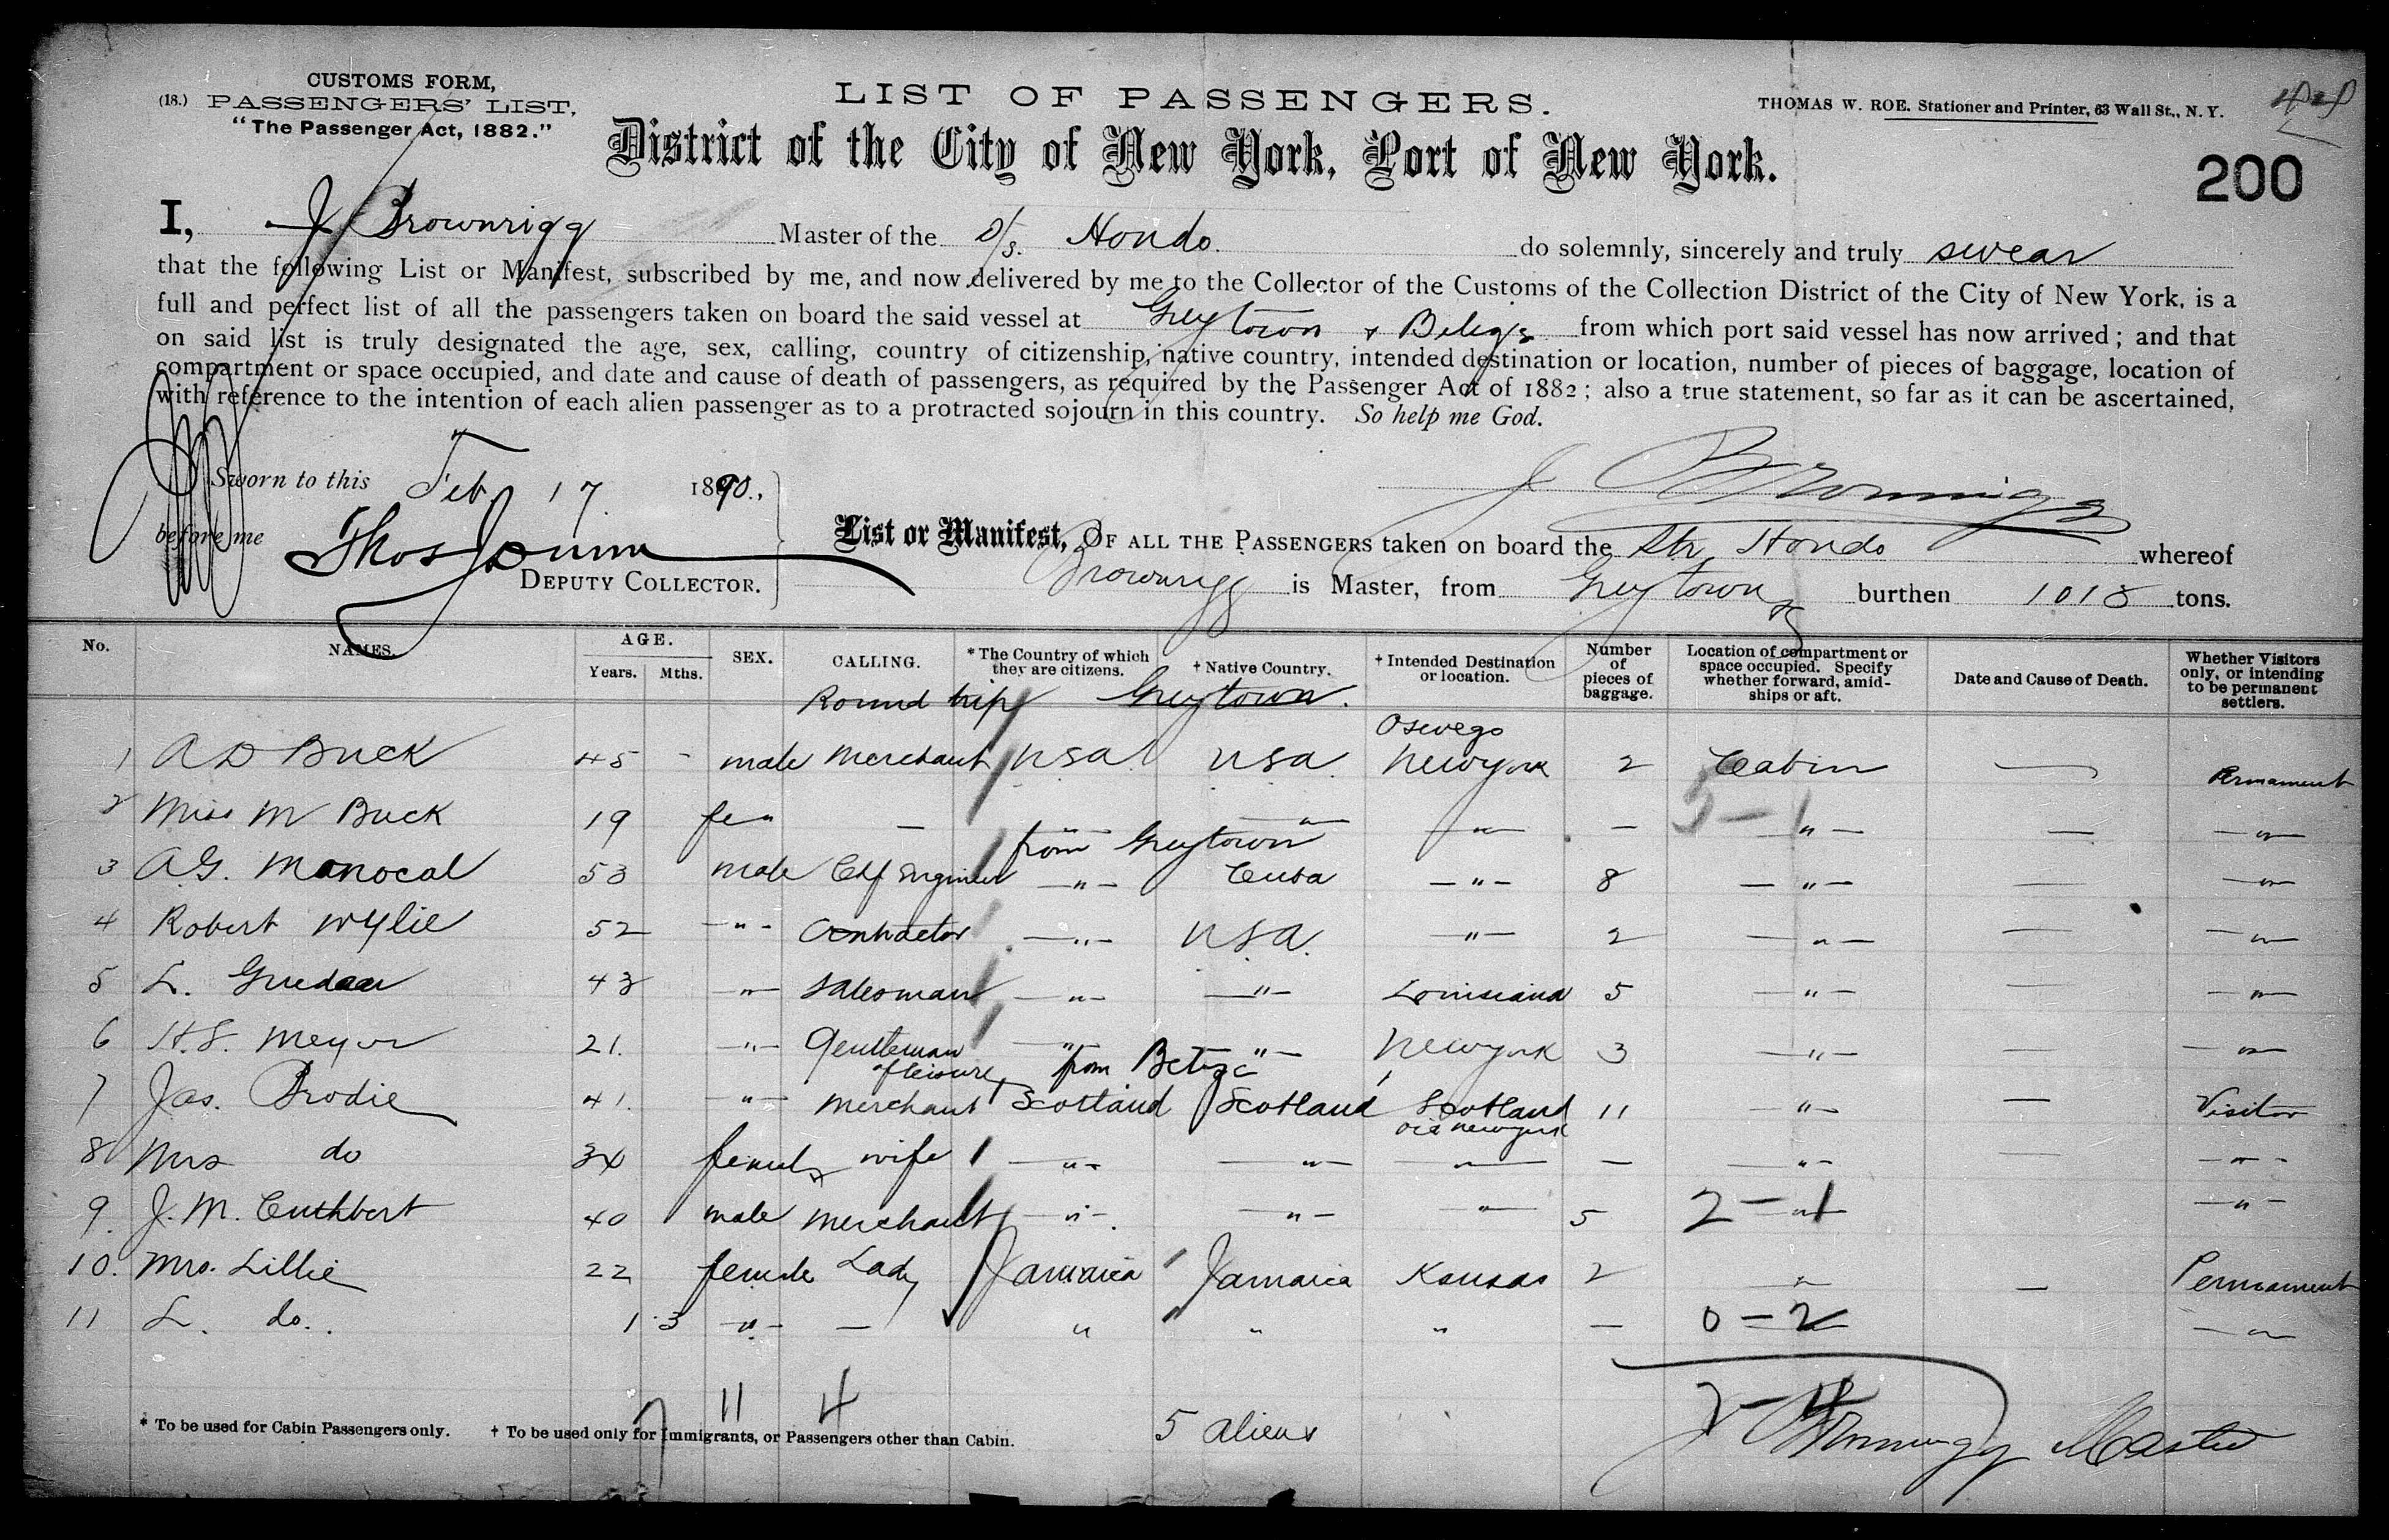 CUSTOMS FORM,
(18.) PASSENGERS' LIST,
"The Passenger Act, 1882."
LIST OF PASSENGERS.
THOMAS W. ROE. Stationer and Printer, 63 Wall St., N. Y.
District of the City of New York, Port of New York.
200
I, J Brownrigg Master of the S/S. Hondo. do solemnly, sincerely and truly swear
that the following List or Manifest, subscribed by me, and now delivered by me to the Collector of the Customs of the Collection District of the City of New York, is a
full and perfect list of all the passengers taken on board the said vessel at Greytown & Belize from which port said vessel has now arrived; and that
on said list is truly designated the age, sex, calling, country of citizenship, native country, intended destination or location, number of pieces of baggage, location of
compartment or space occupied, and date and cause of death of passengers, as required by the Passenger Act of 1882; also a true statement, so far as it can be ascertained,
with reference to the intention of each alien passenger as to a protracted sojourn in this country. So help me God.
Sworn to this Feb. 17 1890.,
J Brownrigg
before me Thos
DEPUTY COLLECTOR.
List or Manifest, OF ALL THE PASSENGERS taken on board the Str. Hondo whereof
Brownrigg is Master, from Greytown burthen 1018 tons.
No. NAMES. AGE. Years. Mths. SEX. CALLING. * The Country of which they are citizens. † Native Country. † Intended Destination or location. Number of pieces of baggage. Location of compartment or space occupied. Specify whether forward, amidships or aft. Date and Cause of Death. Whether Visitors only, or intending to be permanent settlers.
Round trip Greytown.
1 A D Buck 45 - male Merchant USA USA. Oswego New york 2 Cabin — Permament
2 Miss M Buck 19 fem — " " — " — — — " — — — " —
from Greytown
3 A.G. Menocal 53 male Chf Engineer — " — Cuba — " — 8 — " — — — " —
4 Robert Wylie 52 — " — Contractor — " — U.S.A. — " — 2 — " — — — " —
5 L. 43 — " — Salesman — " — — " — Louisiana 5 — " — — — " —
6 H.S. Meyer 21. — " — Gentleman of leisure — " — — " — New york 3 — " — — — " —
from Belize
7 Jas. Brodie 41. — " — Merchant Scotland Scotland Scotland via new york 11 — " — — Visitor
8 Mrs do 34 female wife — " — — " — — " — — — " — — — " —
9. J. M. Cuthbert 40 male Merchant — " — — " — " 5 2 — 1 — " —
10. Mrs. Lillie 22 female Lady Jamaica Jamaica Kansas 2 " — Permament
11 L. do. 1 3 — " — — " " " — 0 — 2 — " —
7 11 4
* To be used for Cabin Passengers only. † To be used only for Immigrants, or Passengers other than Cabin.
5 aliens
7 — 4
J Brownrigg Master